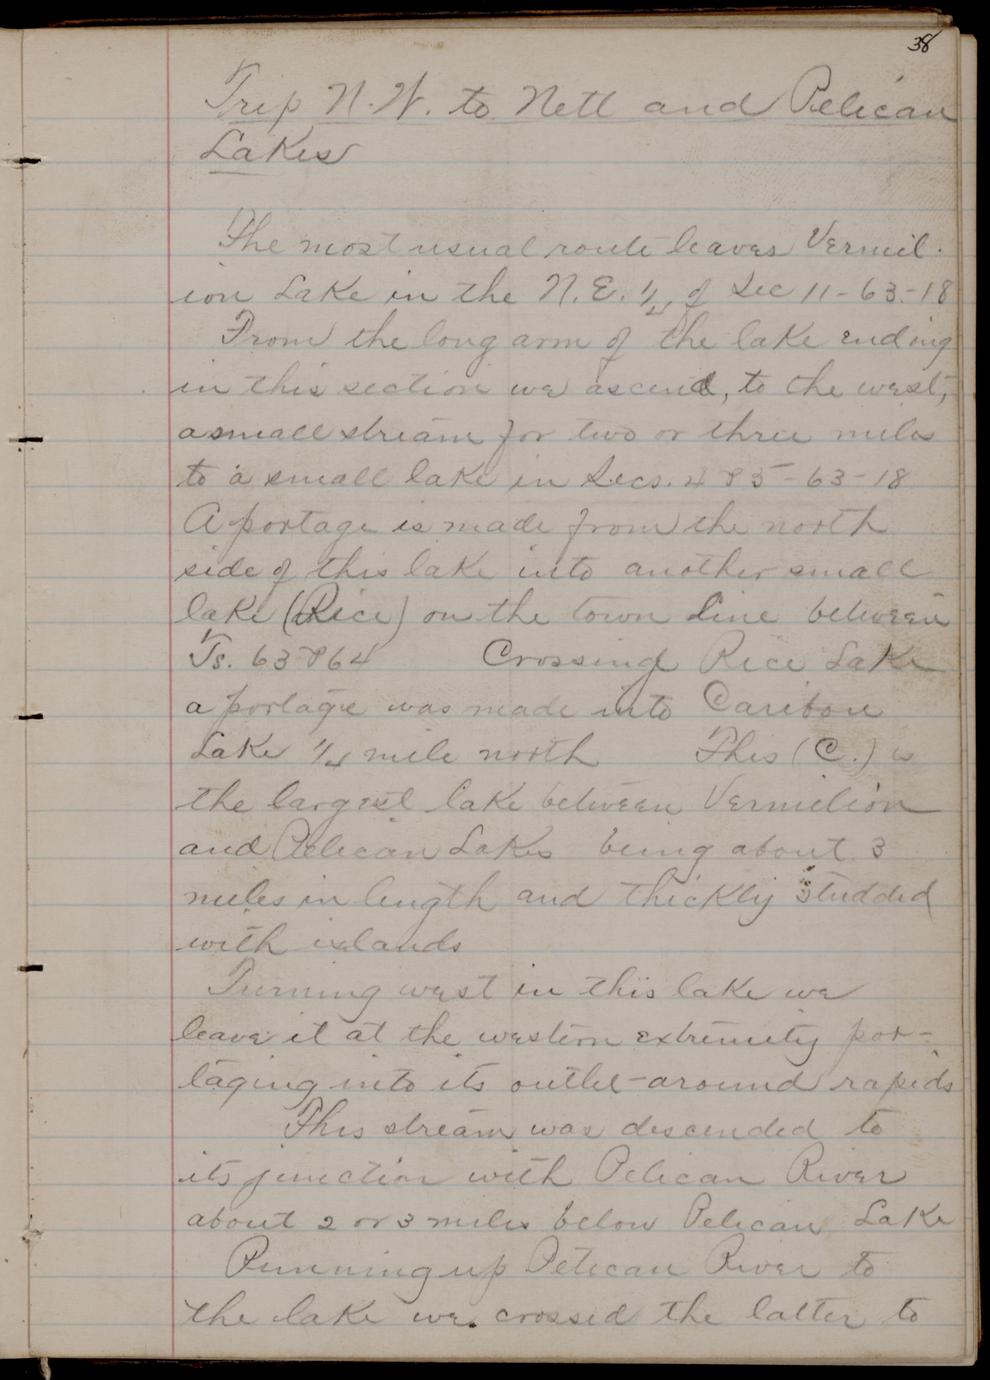 38
Trip N.W. to Nett and Pelican
Lakes
The most usual route leaves Vermil-
ion Lake in the N.E. 1/4 of Sec 11-63-18
From the long arm of the lake ending
in this section we ascend, to the west,
a small stream for two or three miles
to a small lake in Secs. 4 & 5-63-18
A portage is made from the north
side of this lake into another small
lake (Rice) on the town line between
Ts. 63 & 64 Crossing Rice Lake
a portage was made into Caribou
Lake 1/4 mile north This (C.) is
the largest lake between Vermilion
and Pelican Lakes being about 3
miles in length and thickly studded
with islands
Turning west in this lake we
leave it at the western extremity por-
taging into its outlet around rapids
This stream was descended to
its junction with Pelican River
about 2 or 3 miles below Pelican Lake
Running up Pelican River to
the lake we crossed the latter to